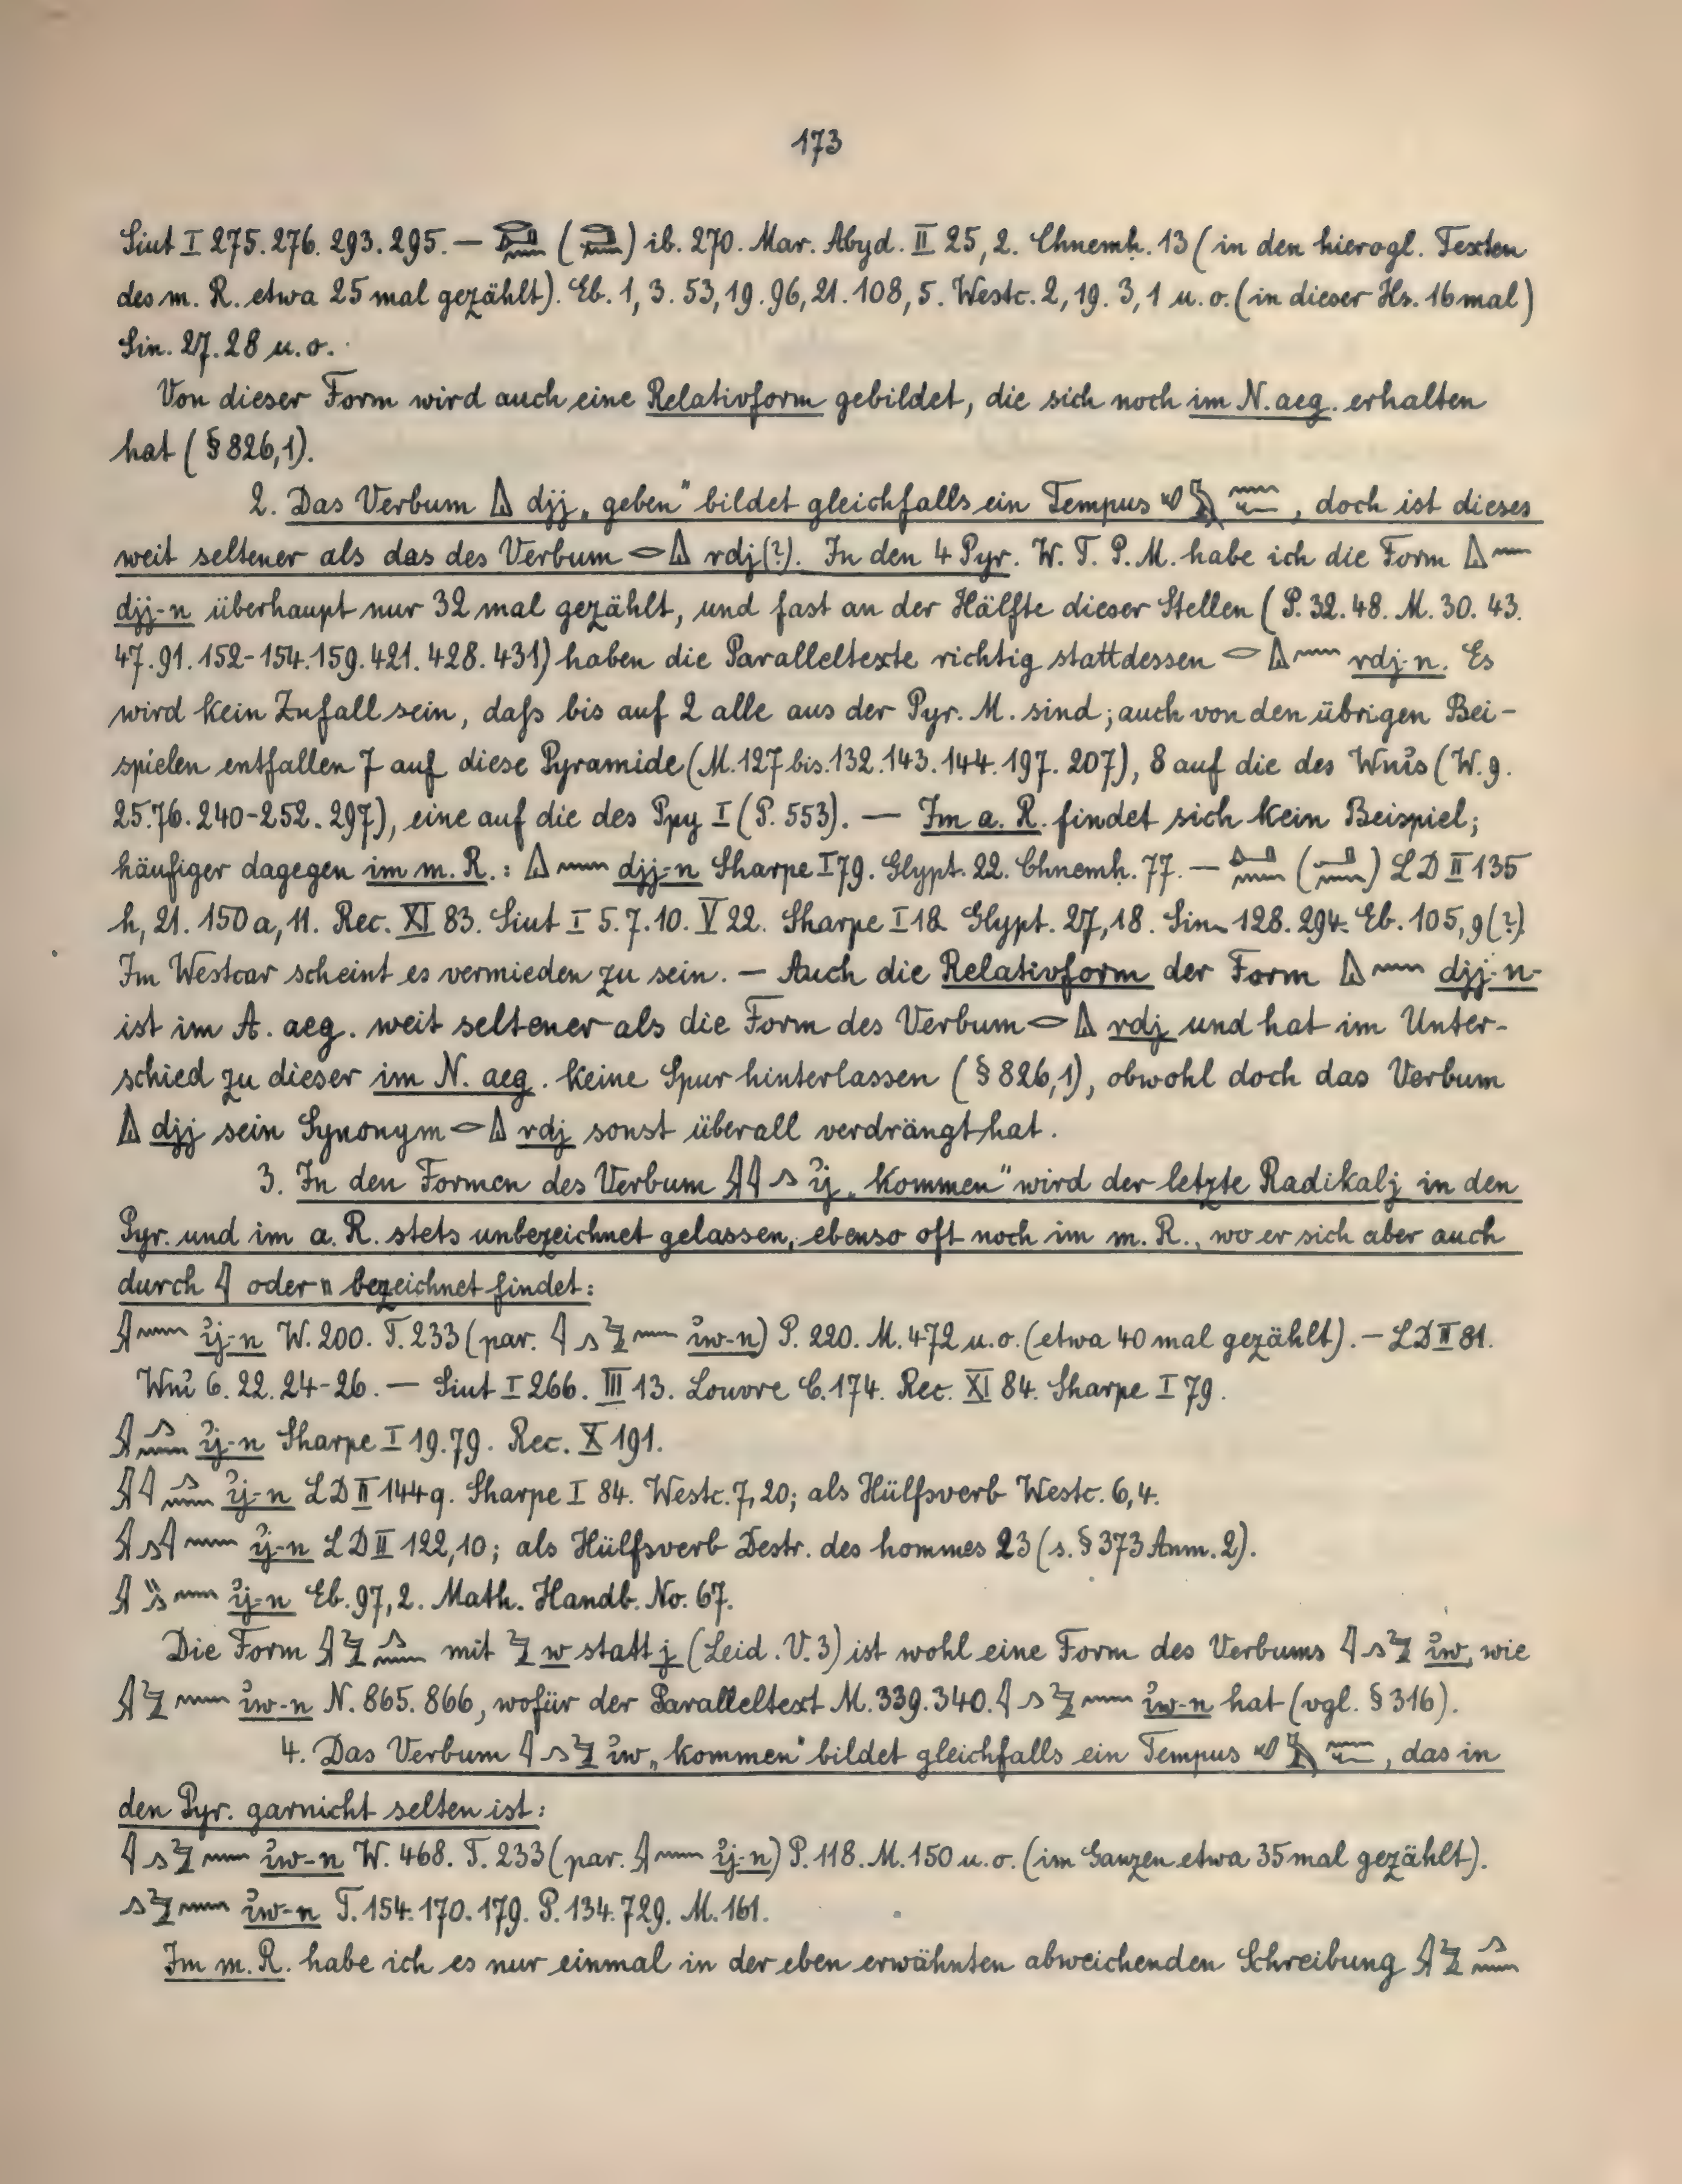 173
Siut I 275. 276. 293. 295. — ( ) ib. 270. Mar. Abyd. II 25, 2. Chnemḥ. 13 (in den hierogl. Texten
des m. R. etwa 25 mal gezählt). Eb. 1, 3. 53, 19. 96, 21. 108, 5. Westc. 2, 19. 3, 1 u. o. (in dieser Hs. 16 mal)
Sin. 27. 28 u. o.
Von dieser Form wird auch eine Relativform gebildet, die sich noch im N. aeg. erhalten
hat (§ 826, 1).
2. Das Verbum djj „geben" bildet gleichfalls ein Tempus , doch ist dieses
weit seltener als das des Verbum rdj (?). In den 4 Pyr. W. T. P. M. habe ich die Form
djj-n überhaupt nur 32 mal gezählt, und fast an der Hälfte dieser Stellen (P. 32. 48. M. 30. 43.
47. 91. 152-154. 159. 421. 428. 431) haben die Paralleltexte richtig stattdessen rdj-n. Es
wird kein Zufall sein, daß bis auf 2 alle aus der Pyr. M. sind; auch von den übrigen Bei-
spielen entfallen 7 auf diese Pyramide (M. 127 bis 132. 143. 144. 197. 207), 8 auf die des Wnỉs (W. 9.
25. 76. 240-252. 297), eine auf die des Ppy I (P. 553). — Im a. R. findet sich kein Beispiel;
häufiger dagegen im m. R.: djj-n Sharpe I 79. Glypt. 22. Chnemḥ. 77. — ( ) LD II 135
h, 21. 150 a, 11. Rec. XI 83. Siut I 5. 7. 10. V 22. Sharpe I 18 Glypt. 27, 18. Sin. 128. 294. Eb. 105, 9 (?)
Im Westcar scheint es vermieden zu sein. — Auch die Relativform der Form djj-n-
ist im A. aeg. weit seltener als die Form des Verbum rdj und hat im Unter-
schied zu dieser im N. aeg. keine Spur hinterlassen (§ 826, 1), obwohl doch das Verbum
djj sein Synonym rdj sonst überall verdrängt hat.
3. In den Formen des Verbum ỉj „kommen" wird der letzte Radikal j in den
Pyr. und im a. R. stets unbezeichnet gelassen, ebenso oft noch im m. R., wo er sich aber auch
durch oder bezeichnet findet:
ỉj-n W. 200. T. 233 (par. ỉw-n) P. 220. M. 472 u. o. (etwa 40 mal gezählt). — LD II 81.
Wnỉ 6. 22. 24-26. — Siut I 266. III 13. Louvre C. 174. Rec. XI 84. Sharpe I 79.
ỉj-n Sharpe I 19. 79. Rec. X 191.
ỉj-n LD II 144 q. Sharpe I 84. Westc. 7, 20; als Hülfsverb Westc. 6, 4.
ỉj-n LD II 122, 10; als Hülfsverb Destr. des hommes 23 (s. § 373 Anm. 2).
ỉj-n Eb. 97, 2. Math. Handb. No. 67.
Die Form mit w statt j (Leid. V. 3) ist wohl eine Form des Verbums ỉw, wie
ỉw-n N. 865. 866, wofür der Paralleltext M. 339. 340. ỉw-n hat (vgl. § 316).
4. Das Verbum ỉw „kommen" bildet gleichfalls ein Tempus , das in
den Pyr. garnicht selten ist:
ỉw-n W. 468. T. 233 (par. ỉj-n) P. 118. M. 150 u. o. (im Ganzen etwa 35 mal gezählt).
ỉw-n T. 154. 170. 179. P. 134. 729. M. 161.
Im m. R. habe ich es nur einmal in der eben erwähnten abweichenden Schreibung